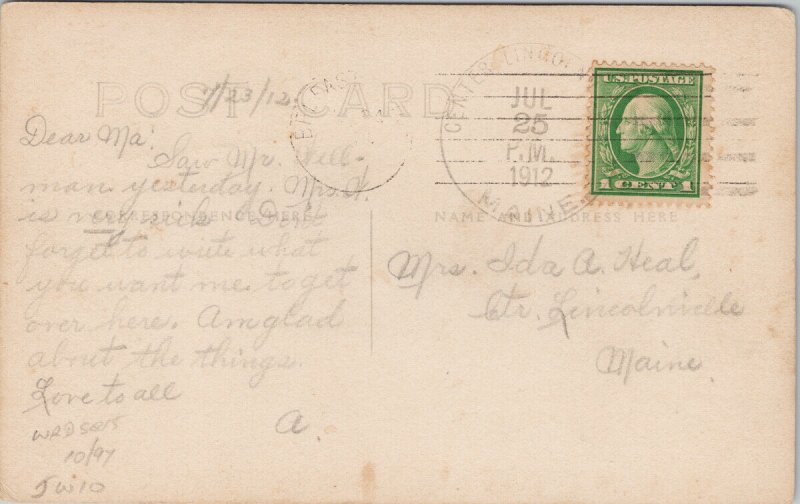 POST CARD
7/23/12.
Dear Ma:
Saw Mr. Hell-
man yesterday. Mrs. H.
is very sick. Don't
forget to write what
you want me to get
over here. Am glad
about the things.
Love to all
A.
10/97
JW10
CORRESPONDENCE HERE
NAME AND ADDRESS HERE
CENTER LINCOLN
JUL
25
P.M.
1912
MAINE
U.S. POSTAGE
1 CENT 1
Mrs. Ida A. Heal,
Ctr. Lincolnville
Maine.